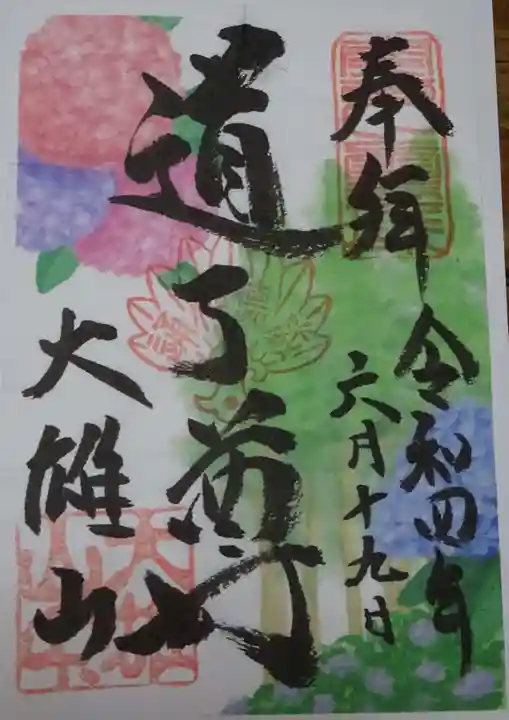 奉拝
令和四年
六月十九日
道了
大雄山